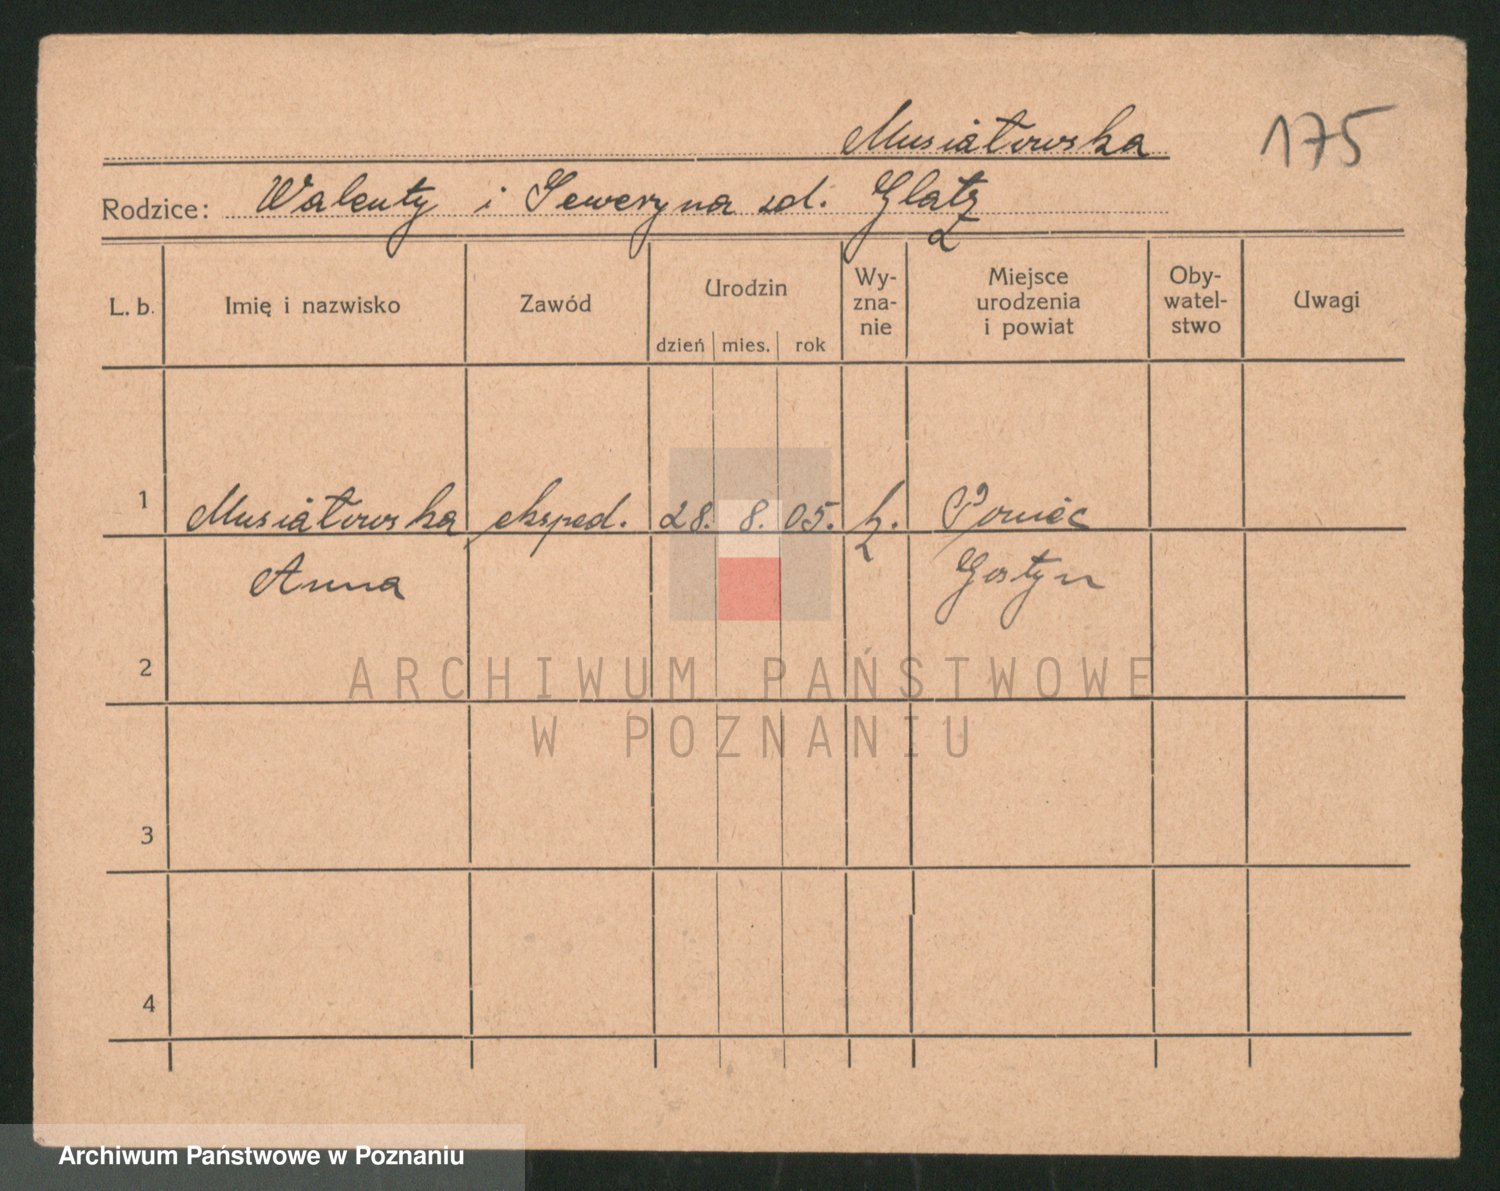 Musiałowska 175
Rodzice: Walenty i Seweryna zd. Glatz
L. b. Imię i nazwisko Zawód Urodzin dzień mies. rok Wy-zna-nie Miejsce urodzenia i powiat Oby-watel-stwo Uwagi
1 Musiałowska eksped. 28. 8. 05. k. Poniec
Anna Gostyn
2
ARCHIWUM PAŃSTWOWE
W POZNANIU
3
4
Archiwum Państwowe w Poznaniu